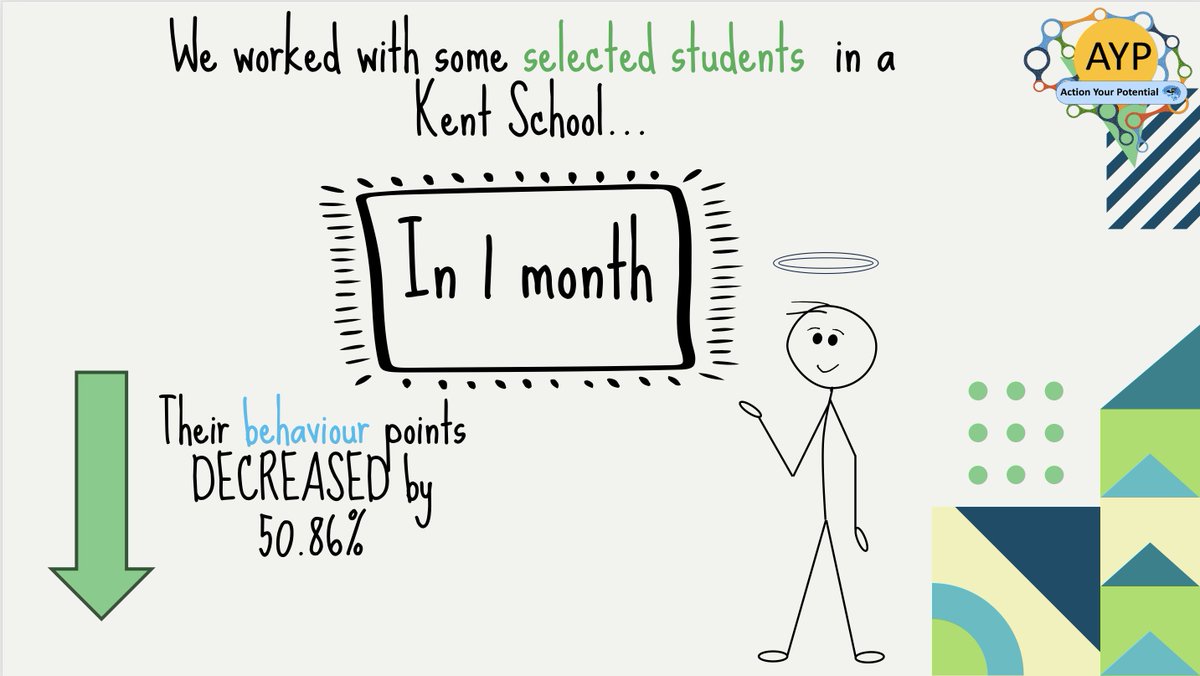 We worked with some selected students in a
Kent School...
AYP
Action Your Potential
In 1 month
Their behaviour points
DECREASED by
50.86%